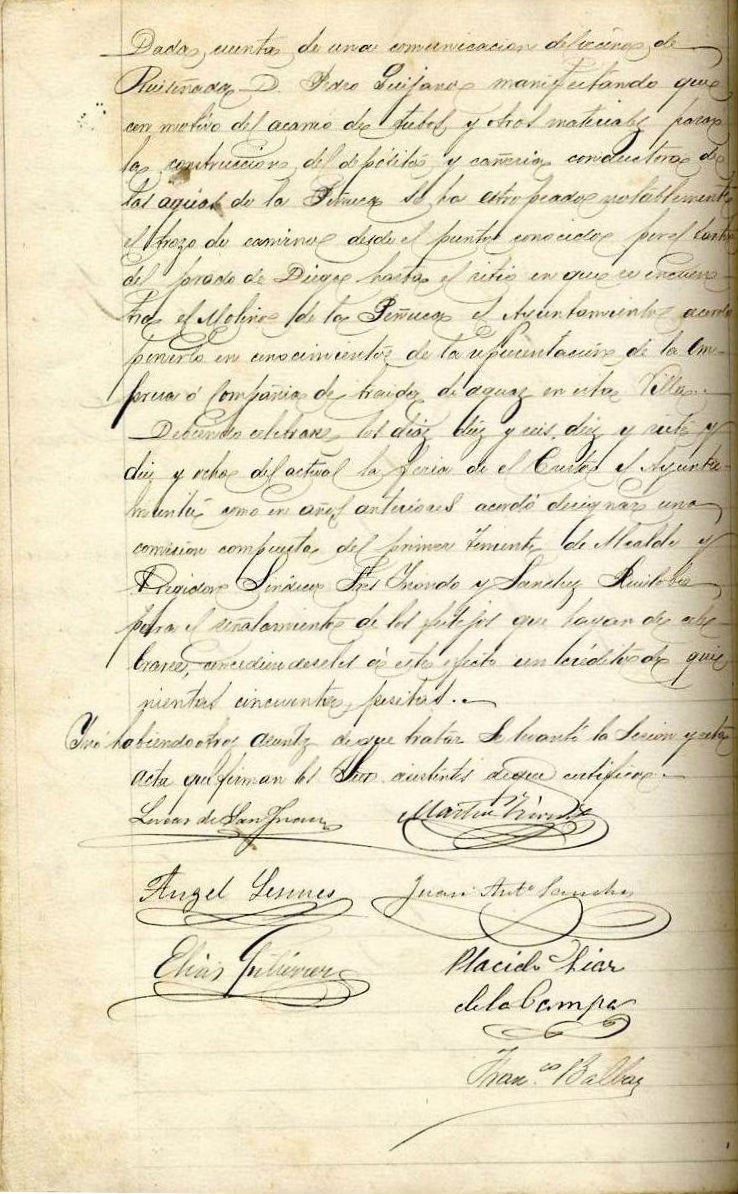 Dada cuenta de una comunicacion del vecino de
Ruiseñada D. Pedro Quijano manifestando que
con motivo del acarreo de tubos y otros materiales para
la construccion del depósito y cañeria conductora de
las aguas de la Peñuca se ha estropeado notablemente
el trozo de camino desde el punto conocido por el
del prado de Diego hasta el sitio en que se encuen-
tra el Molino de la Peñuca el Ayuntamiento acordó
ponerlo en conocimiento de la representación de la em-
presa ó Compañia de traida de aguas en esta Villa.
Debiendo celebrarse los dias diez y seis, diez y siete y
diez y ocho del actual la feria de el Cristo el Ayunta-
miento como en años anteriores acordó designar una
comision compuesta del primer Teniente de Alcalde y
Regidor Sindico Sres Trondo y Sanchez Ruiloba
para el señalamiento de los festejos que hayan de cele-
brarse, concediendoseles á este efecto un crédito de qui-
nientas cincuenta pesetas.
Y no habiendo otros asuntos de que tratar se levantó la Sesion y esta
acta que firman los Sres asistentes de que certifico.
Lucas de San Juan Martin
Angel Juan Antº Sanchez
Elias Gutierrez Placido Diaz
de la Campa
Franco Balbas